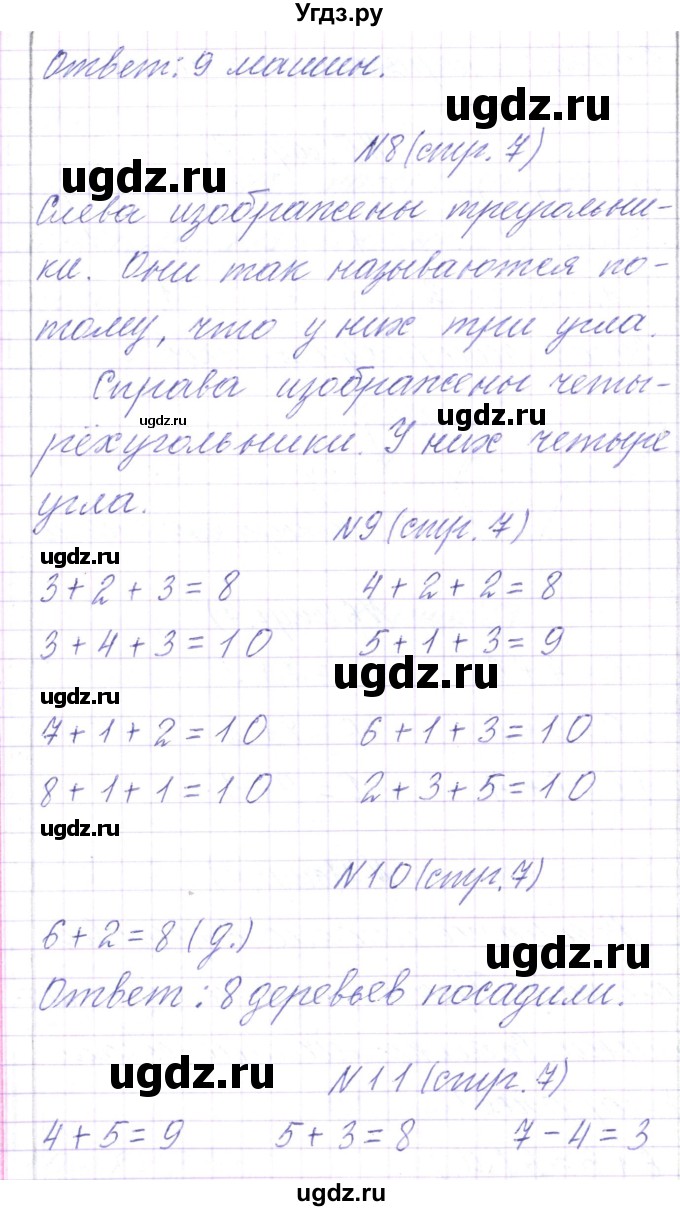 Угдз.ру
Ответ: 9 машин.
ugdz.ru
№8 (стр. 7)
ugdz.ru
Слева изображены треугольни-
ки. Они так называются по-
тому, что у них три угла.
Справа изображены четы-
ugdz.ru
ugdz.ru
рёхугольники. У них четыре
угла.
№9 (стр. 7)
ugdz.ru
3+2+3=8 4+2+2=8
3+4+3=10 5+1+3=9
ugdz.ru
ugdz.ru
7+1+2=10 6+1+3=10
8+1+1=10 2+3+5=10
ugdz.ru
№10 (стр. 7)
6+2=8 (д.)
ugdz.ru
Ответ: 8 деревьев посадили.
ugdz.ru
№11 (стр. 7)
4+5=9 5+3=8 7-4=3
ugdz.ru